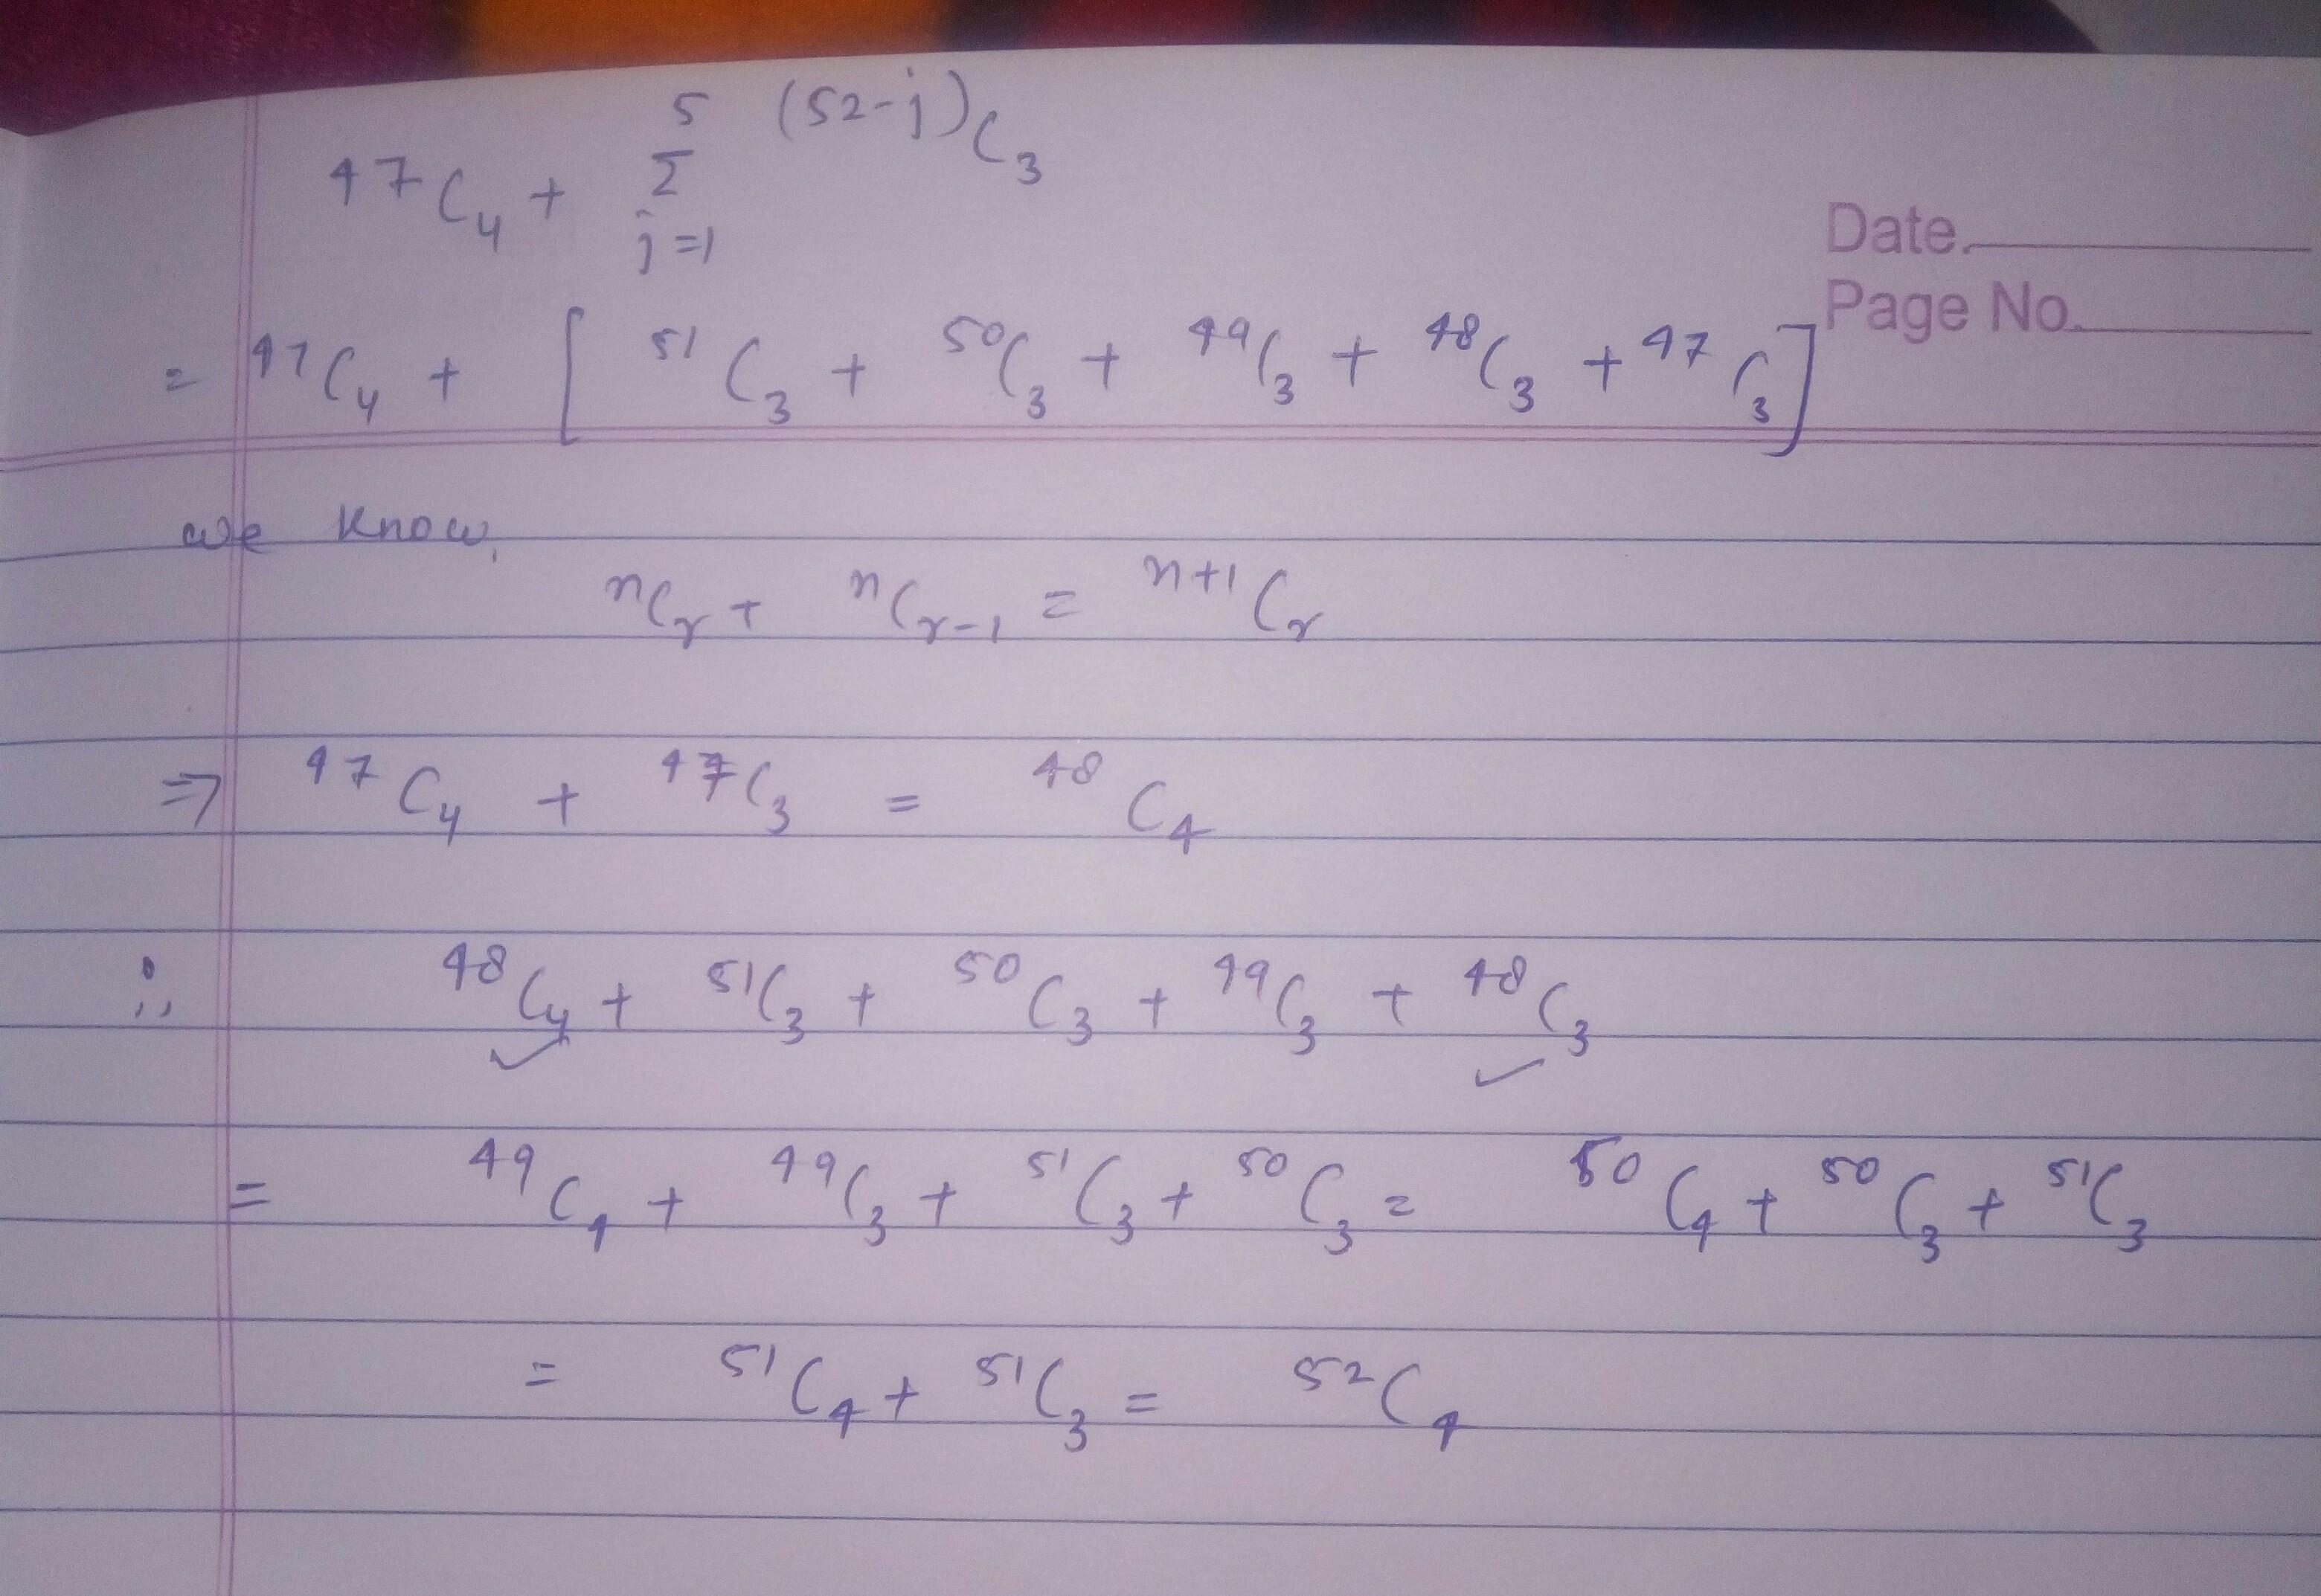 ⁴⁷C₄ + 5 Σ j=1 (52-j)C₃
Date.
Page No.
= ⁴⁷C₄ + [ ⁵¹C₃ + ⁵⁰C₃ + ⁴⁹C₃ + ⁴⁸C₃ + ⁴⁷C₃ ]
we know,
ⁿCᵣ + ⁿCᵣ₋₁ = ⁿ⁺¹Cᵣ
⇒ ⁴⁷C₄ + ⁴⁷C₃ = ⁴⁸C₄
∴ ⁴⁸C₄ + ⁵¹C₃ + ⁵⁰C₃ + ⁴⁹C₃ + ⁴⁸C₃
✓ ✓
= ⁴⁹C₄ + ⁴⁹C₃ + ⁵¹C₃ + ⁵⁰C₃ = ⁵⁰C₄ + ⁵⁰C₃ + ⁵¹C₃
= ⁵¹C₄ + ⁵¹C₃ = ⁵²C₄